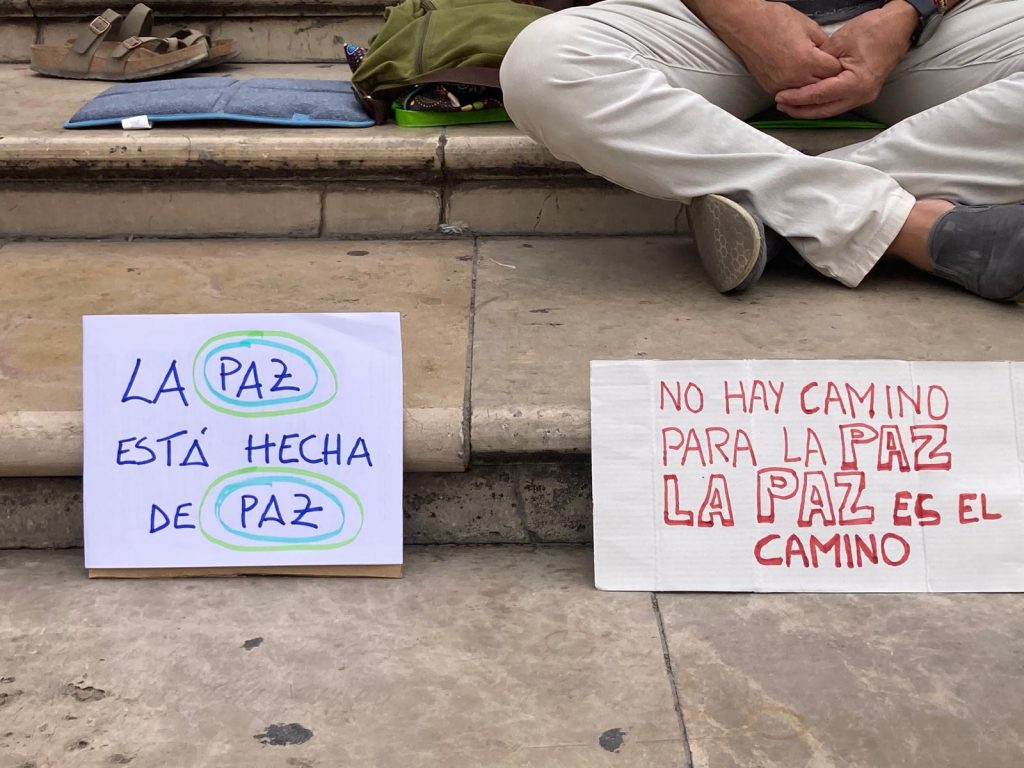 LA PAZ
ESTÁ HECHA
DE PAZ
NO HAY CAMINO
PARA LA PAZ
LA PAZ ES EL
CAMINO